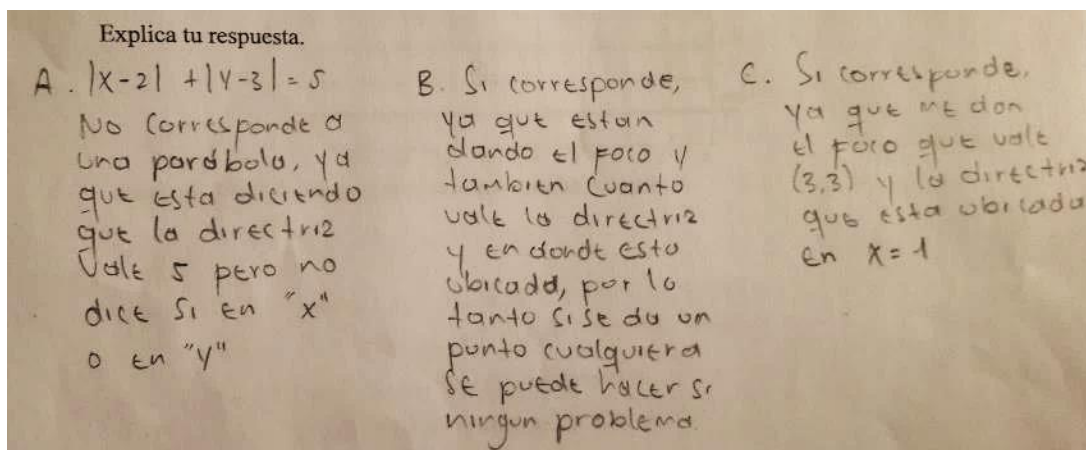 Explica tu respuesta.
A. |x-2| + |y-3| = 5
No corresponde a
una parábola, ya
que esta diciendo
que la directriz
Vale 5 pero no
dice si en "x"
o en "y"
B. Si corresponde,
ya que estan
dando el foco y
tambien cuanto
vale la directriz
y en donde esta
ubicada, por lo
tanto si se da un
punto cualquiera
se puede hacer si
ningun problema.
C. Si corresponde,
ya que me dan
el foco que vale
(3,3) y la directriz
que esta ubicada
en x=-1